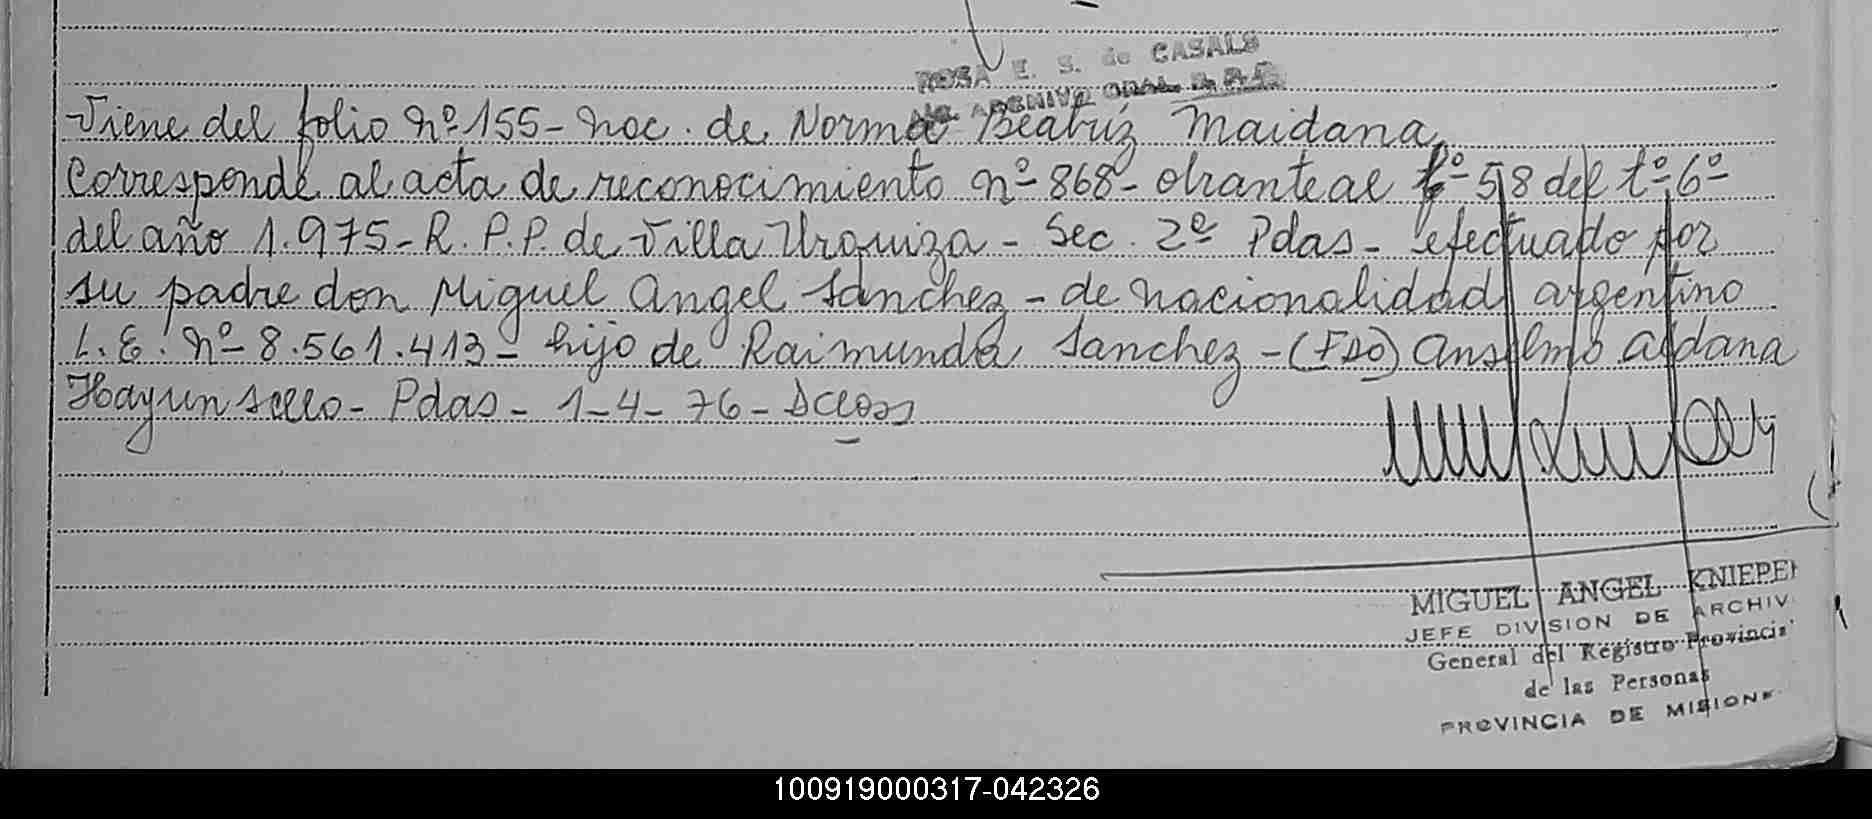 ROSA E. S. de CASALS
ARCHIVO GRAL.
Viene del folio nº 155- noc. de Norma Beatríz Maidana,
Corresponde al acta de reconocimiento nº 868- obrante al fº 58 del tº 6º
del año 1.975- R. P. P. de Villa Urquiza - Sec. 2ª Pdas- efectuado por
su padre don Miguel Angel Sánchez - de nacionalidad argentino
L. E. nº 8.561.413- hijo de Raimunda Sanchez - (FDO) Anselmo Aldana
Hay un sello- Pdas- 1-4- 76-
MIGUEL ANGEL KNIEPE
JEFE DIVISION DE ARCHIV
General del Registro Provincia
de las Personas
PROVINCIA DE MISIONE
100919000317-042326